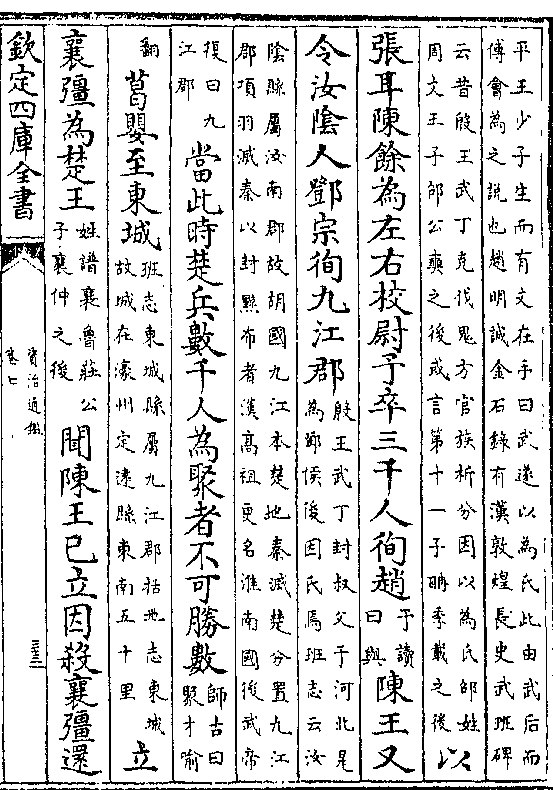 平王少子生而有文在手曰武遂以為氏此由武后而
傅會為之說也趙明誠金石錄有漢敦煌長史武班碑
云昔殷王武丁克伐鬼方官族析分因以為氏邵姓
周文王子邵公奭之後或言第十一子聃季載之後
以
張耳陳餘為左右校尉予卒三千人徇趙
予讀
曰與
陳王又
令汝陰人鄧宗徇九江郡
殷王武丁封叔父于河北是
為鄧侯後因氏焉班志云汝
陰縣屬汝南郡故胡國九江本楚地秦滅楚分置九江
郡項羽滅秦以封黥布者漢高祖更名淮南國後武帝
復曰九
江郡
當此時楚兵數千人為聚者不可勝數
師古曰
聚才喻
翻
葛嬰至東城
班志東城縣屬九江郡括地志東城
故城在濠州定遠縣東南五十里
立
襄彊為楚王
姓譜襄魯莊公
子襄仲之後
聞陳王已立因殺襄彊還
欽定四庫全書
資治通鑑
卷七
三十三